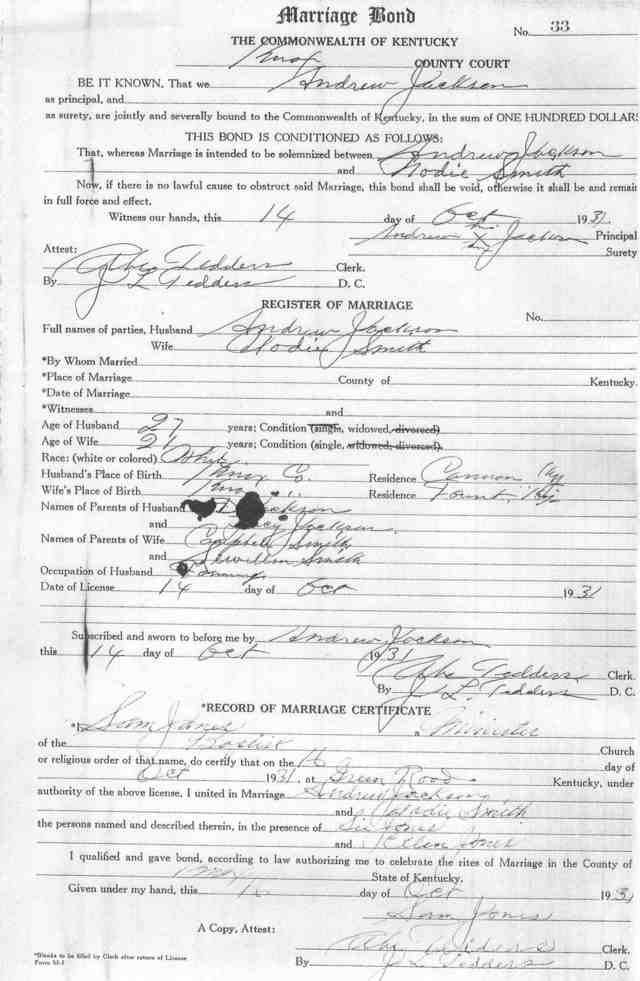 Marriage Bond
No. 33
THE COMMONWEALTH OF KENTUCKY
Knox COUNTY COURT
BE IT KNOWN, That we Andrew Jackson
as principal, and
as surety, are jointly and severally bound to the Commonwealth of Kentucky, in the sum of ONE HUNDRED DOLLARS
THIS BOND IS CONDITIONED AS FOLLOWS:
That, whereas Marriage is intended to be solemnized between Andrew Jackson
and Nodie Smith
Now, if there is no lawful cause to obstruct said Marriage, this bond shall be void, otherwise it shall be and remain
in full force and effect.
Witness our hands, this 14 day of Oct 1931.
Andrew X Jackson Principal
Surety
Attest:
Abe Tedders Clerk.
By J L Tedders D. C.
REGISTER OF MARRIAGE
No.
Full names of parties, Husband Andrew Jackson
Wife Nodie Smith
*By Whom Married
*Place of Marriage County of Kentucky.
*Date of Marriage
*Witnesses and
Age of Husband 27 years; Condition (single, widowed, divorced)
Age of Wife 21 years; Condition (single, widowed, divorced)
Race: (white or colored) White
Husband's Place of Birth Knox Co. Residence Cannon Ky
Wife's Place of Birth Knox " Residence Fount, Ky
Names of Parents of Husband Jackson
and Jackson
Names of Parents of Wife Smith
and Smith
Occupation of Husband
Date of License 14 day of Oct 1931
Subscribed and sworn to before me by Andrew Jackson
this 14 day of Oct 1931
Abe Tedders Clerk.
By J L Tedders D. C.
*RECORD OF MARRIAGE CERTIFICATE
*I Sam Jones a Minister
of the Baptist Church
or religious order of that name, do certify that on the 16 day of
Oct 1931, at Green Road Kentucky, under
authority of the above license, I united in Marriage Andrew Jackson
and Nodie Smith
the persons named and described therein, in the presence of Jones
and Ellen Jones
I qualified and gave bond, according to law authorizing me to celebrate the rites of Marriage in the County of
Knox State of Kentucky.
Given under my hand, this 16 day of Oct 1931
Sam Jones
A Copy, Attest:
Abe Tedders Clerk.
By J L Tedders D. C.
*Blanks to be filled by Clerk after return of License